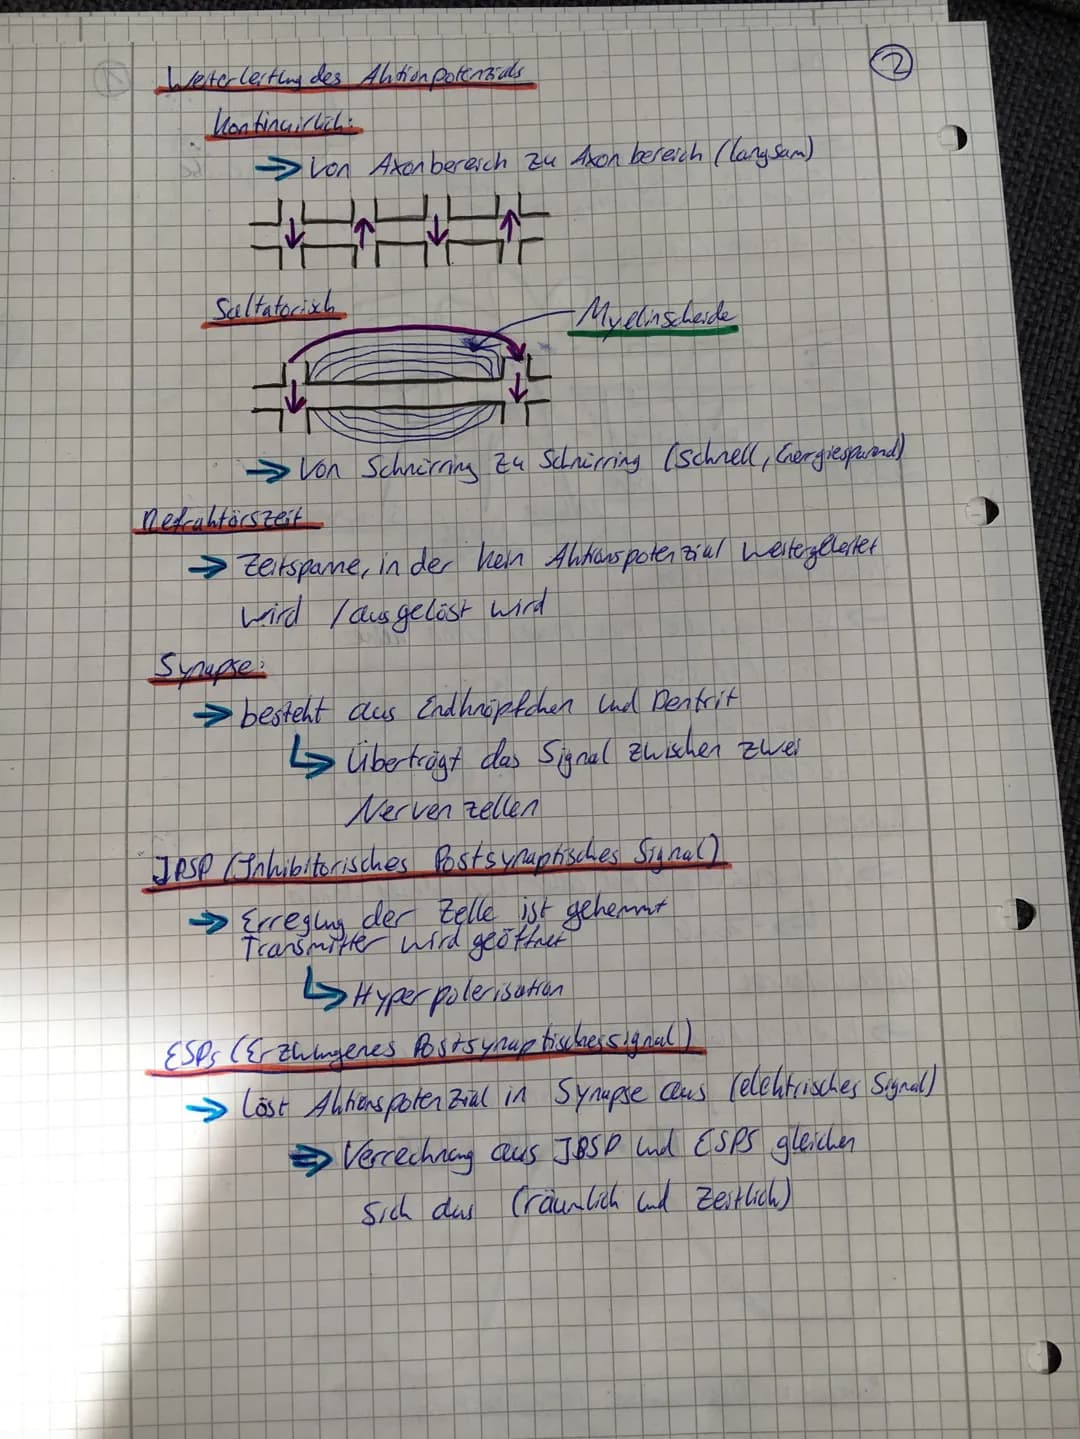 Weiterleitung des Aktionpotenzials
②
Kontinuirlich:
→ Von Axonbereich zu Axonbereich (langsam)
Saltatorisch
Myelinscheide
→ Von Schnürring zu Schnürring (Schnell, Energiesparend)
Refraktärszeit
→ Zeitspanne, in der kein Aktionspotenzial weitergeleitet
wird / ausgelöst wird
Synapse:
→ besteht aus Endknöpfchen und Dentrit
↳ Überträgt das Signal zwischen zwei
Nervenzellen
IPSP (Inhibitorisches Postsynaptisches Signal)
→ Erregung der Zelle ist gehemmt
Transmitter wird geöffnet
↳ Hyperpolerisation
ESPs (Erzwungenes Postsynaptischessignal)
→ Löst Aktionspotenzial in Synapse aus (elektrisches Signal)
⇒ Verrechnung aus IBSP und ESPS gleichen
sich aus (räumlich und zeitlich)